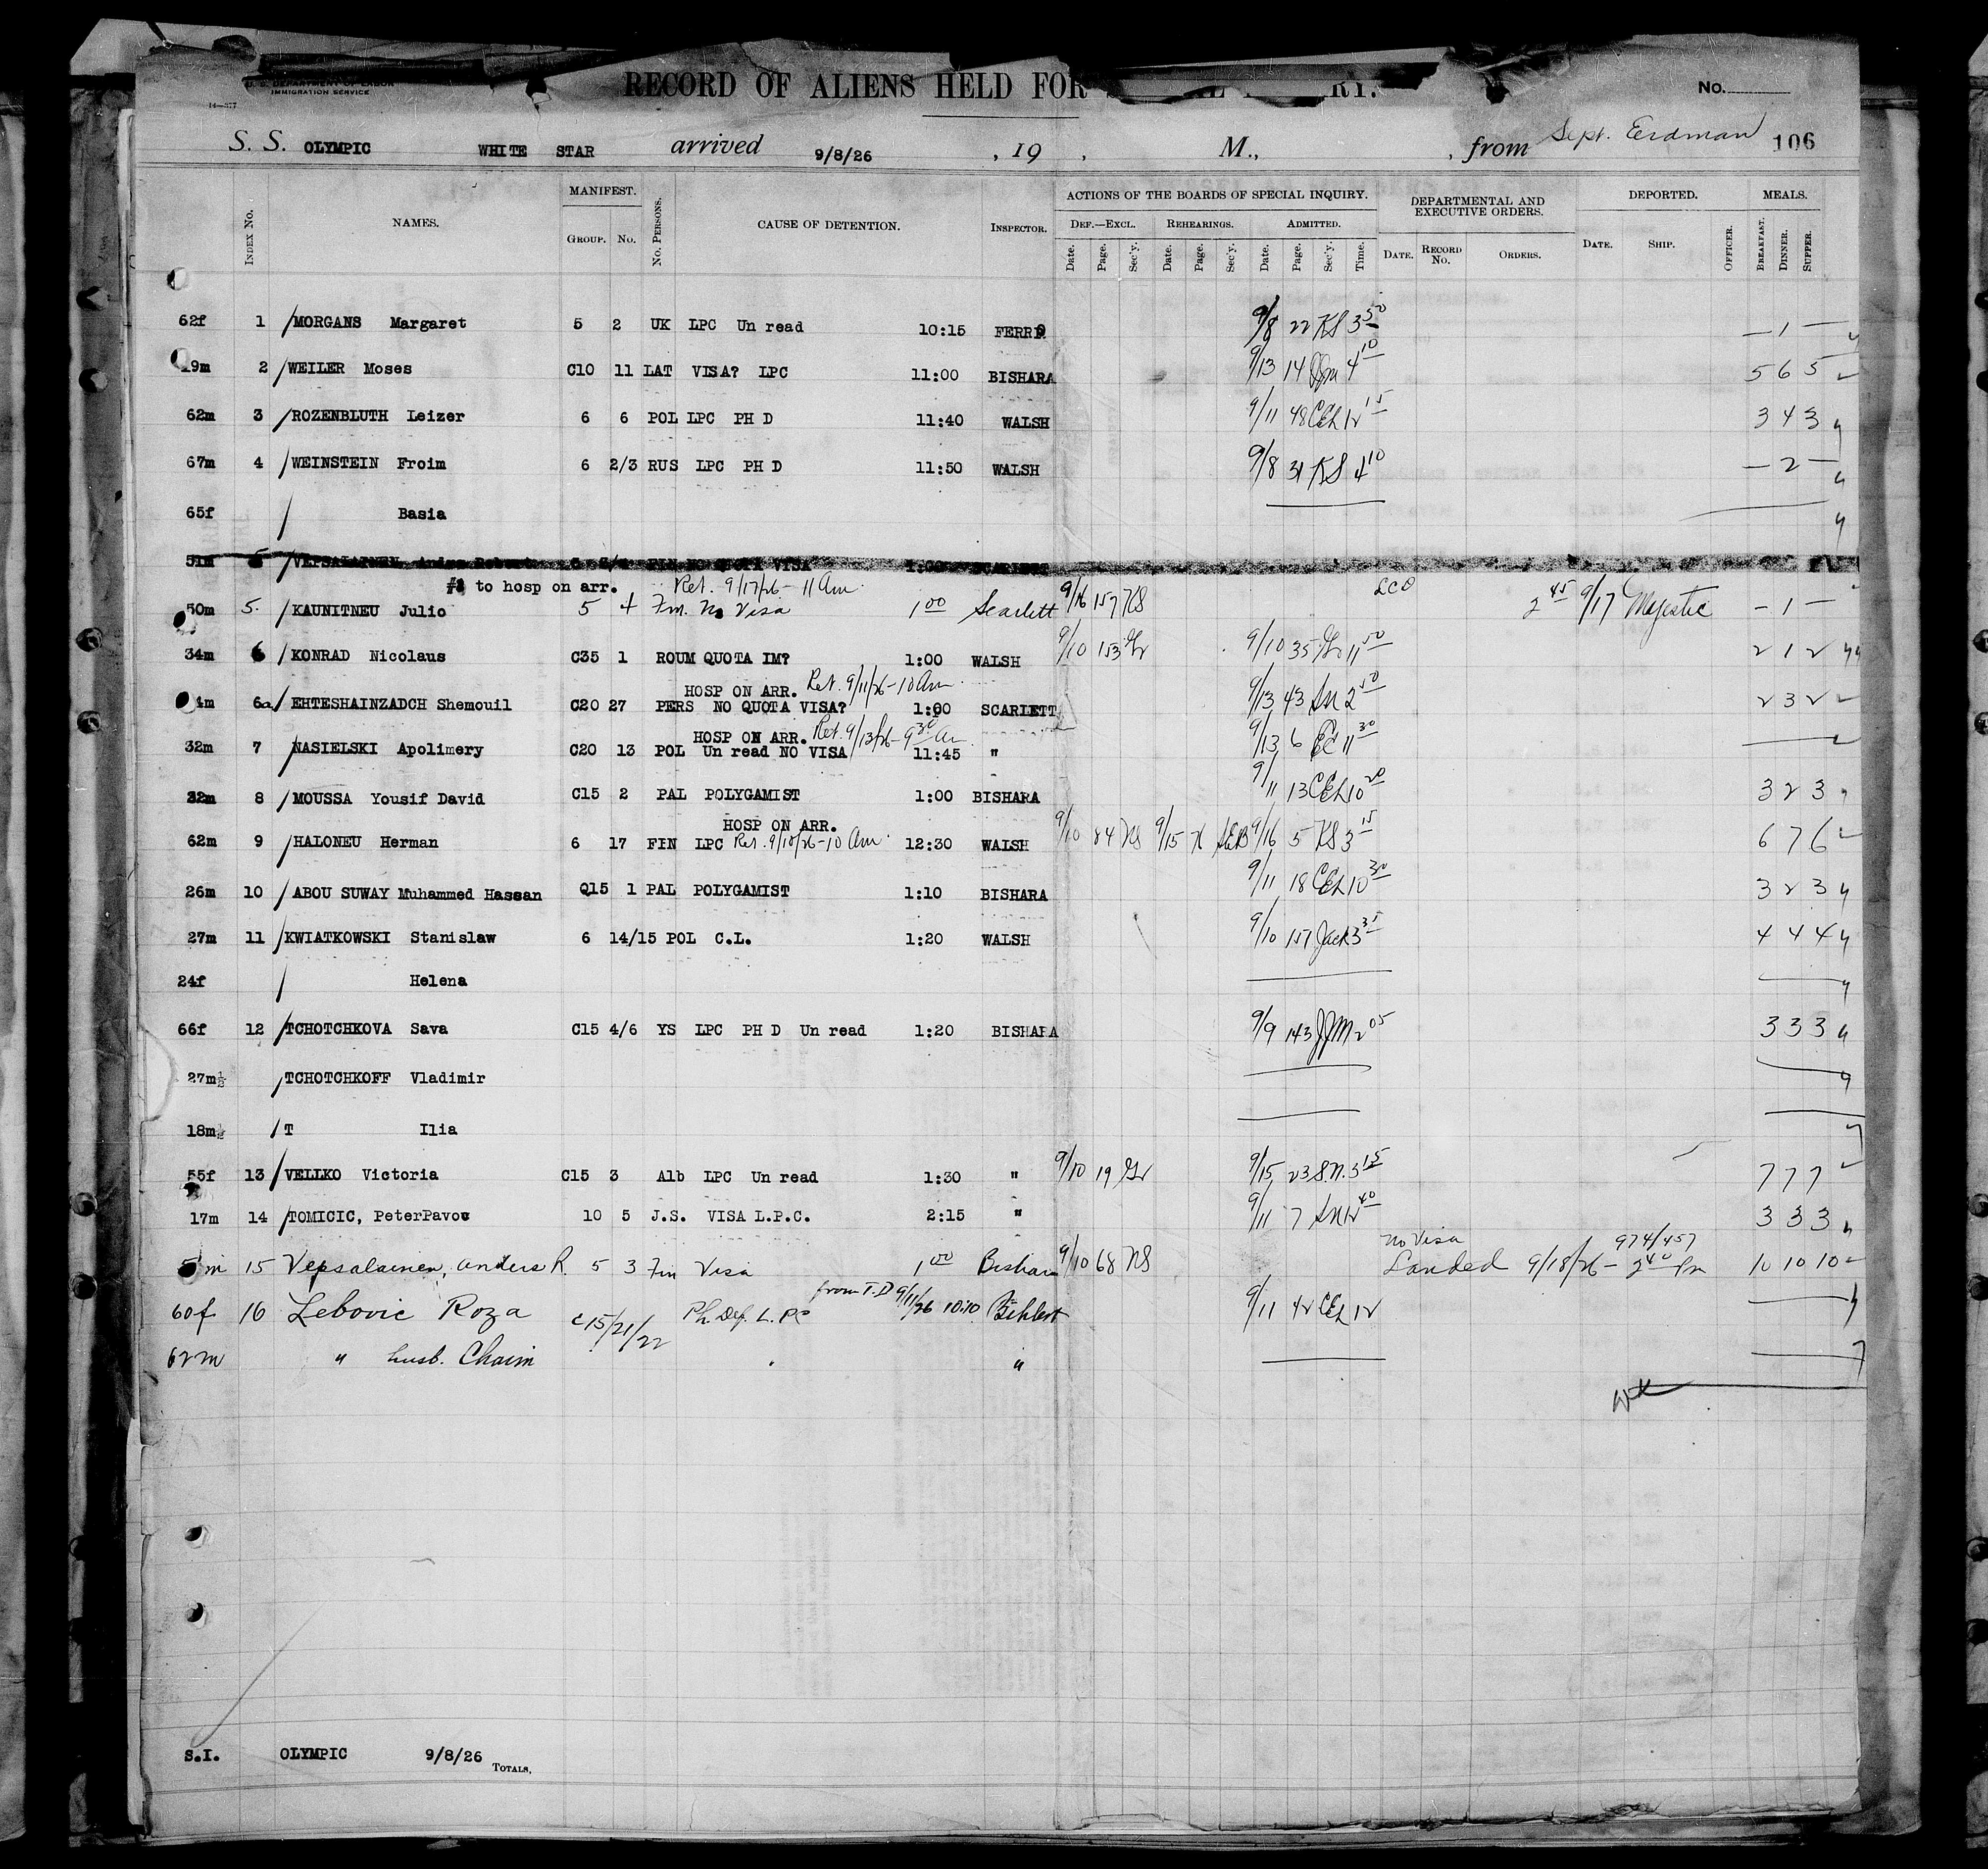 U. S. DEPARTMENT OF LABOR
IMMIGRATION SERVICE
14—377
RECORD OF ALIENS HELD FOR
No.
S. S. OLYMPIC WHITE STAR arrived 9/8/26 , 19 , M., , from Sept. Erdman 106
Index No. NAMES. MANIFEST. Group. No. No. Persons. CAUSE OF DETENTION. Inspector. ACTIONS OF THE BOARDS OF SPECIAL INQUIRY. DEPARTMENTAL AND EXECUTIVE ORDERS. DEPORTED. MEALS.
Def.—Excl. Rehearings. Admitted.
Date. Page. Sec'y. Date. Page. Sec'y. Date. Page. Sec'y. Time. Date. Record No. Orders. Date. Ship. Officer. Breakfast. Dinner. Supper.
62f 1 /MORGANS Margaret 5 2 UK LPC Un read 10:15 FERRO 9/8 22 KS 3 50 — 1 —
9m 2 /WEILER Moses C10 11 LAT VISA? LPC 11:00 BISHARA 9/13 14 4 10 5 6 5
62m 3 /ROZENBLUTH Leizer 6 6 POL LPC PH D 11:40 WALSH 9/11 48 CEL 12 15 3 4 3
67m 4 /WEINSTEIN Froim 6 2/3 RUS LPC PH D 11:50 WALSH 9/8 31 KS 4 10 — 2 —
65f / Basia
51m 5 /VEPSALAINEN FIN NO QUOTA VISA 1:00 SCARLETT
to hosp on arr. Ret. 9/17/26 - 11 Am
50m 5. /KAUNITNEU Julio 5 4 Fin. No Visa 1 00 Scarlett 9/16 157 KS 2 45 9/17 Majestic — 1 —
34m 6 /KONRAD Nicolaus C35 1 ROUM QUOTA IM? 1:00 WALSH 9/10 153 9/10 35 11 50 2 1 2
HOSP ON ARR. Ret. 9/11/26 - 10 Am
4m 6a /EHTESHAINZADCH Shemouil C20 27 PERS NO QUOTA VISA? 1:00 SCARLETT 9/13 43 SN 2 50 2 3 2
HOSP ON ARR. Ret. 9/13/26 - 9 30 Am
32m 7 /NASIELSKI Apolimery C20 13 POL Un read NO VISA 11:45 " 9/13 6 11 30
32m 8 /MOUSSA Yousif David C15 2 PAL POLYGAMIST 1:00 BISHARA 9/11 13 CEL 10 20 3 2 3
HOSP ON ARR.
62m 9 /HALONEU Herman 6 17 FIN LPC Ret. 9/10/26 - 10 Am 12:30 WALSH 9/10 84 KS 9/15 9/16 5 KS 3 15 6 7 6
26m 10 /ABOU SUWAY Muhammed Hassan Q15 1 PAL POLYGAMIST 1:10 BISHARA 9/11 18 CEL 10 30 3 2 3
27m 11 /KWIATKOWSKI Stanislaw 6 14/15 POL C.L. 1:20 WALSH 9/10 157 Jack 3 35 4 4 4
24f / Helena
66f 12 /TCHOTCHKOVA Sava C15 4/6 YS LPC PH D Un read 1:20 BISHARA 9/9 143 JJM 2 05 3 3 3
27m½ /TCHOTCHKOFF Vladimir
18m½ /T Ilia
55f 13 /VELLKO Victoria C15 3 Alb LPC Un read 1:30 " 9/10 19 9/15 23 S.N. 3 15 7 7 7
17m 14 /TOMICIC, PeterPavou 10 5 J.S. VISA L.P.C. 2:15 " 9/11 7 SN 12 40 3 3 3
no Visa 974/457
m 15 Vepsalainen, Anders R. 5 3 Fin Visa 1 00 Bishara 9/10 68 KS Landed 9/18/26 - 2 40 Pm 10 10 10
60f 16 Lebovic Roza C15/21/22 Ph. Def. L.P.C from T.D 9/11/26 10:10 9/11 42 CEL 12
62m " husb. Chaim "
S.I. OLYMPIC 9/8/26
Totals.